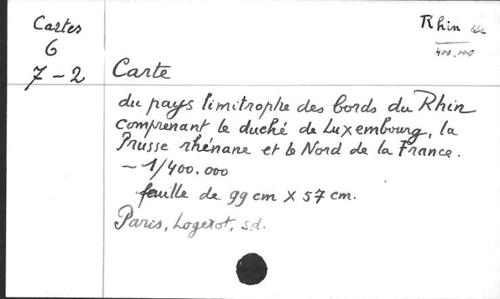 Cartes
6
7-2
Rhin
400.000
Carte
du pays limitrophe des bords du Rhin
comprenant le duché de Luxembourg, la
Prusse rhénane et le Nord de la France.
- 1/400.000
feuille de 99 cm X 57 cm.
Paris, Logerot, s.d.